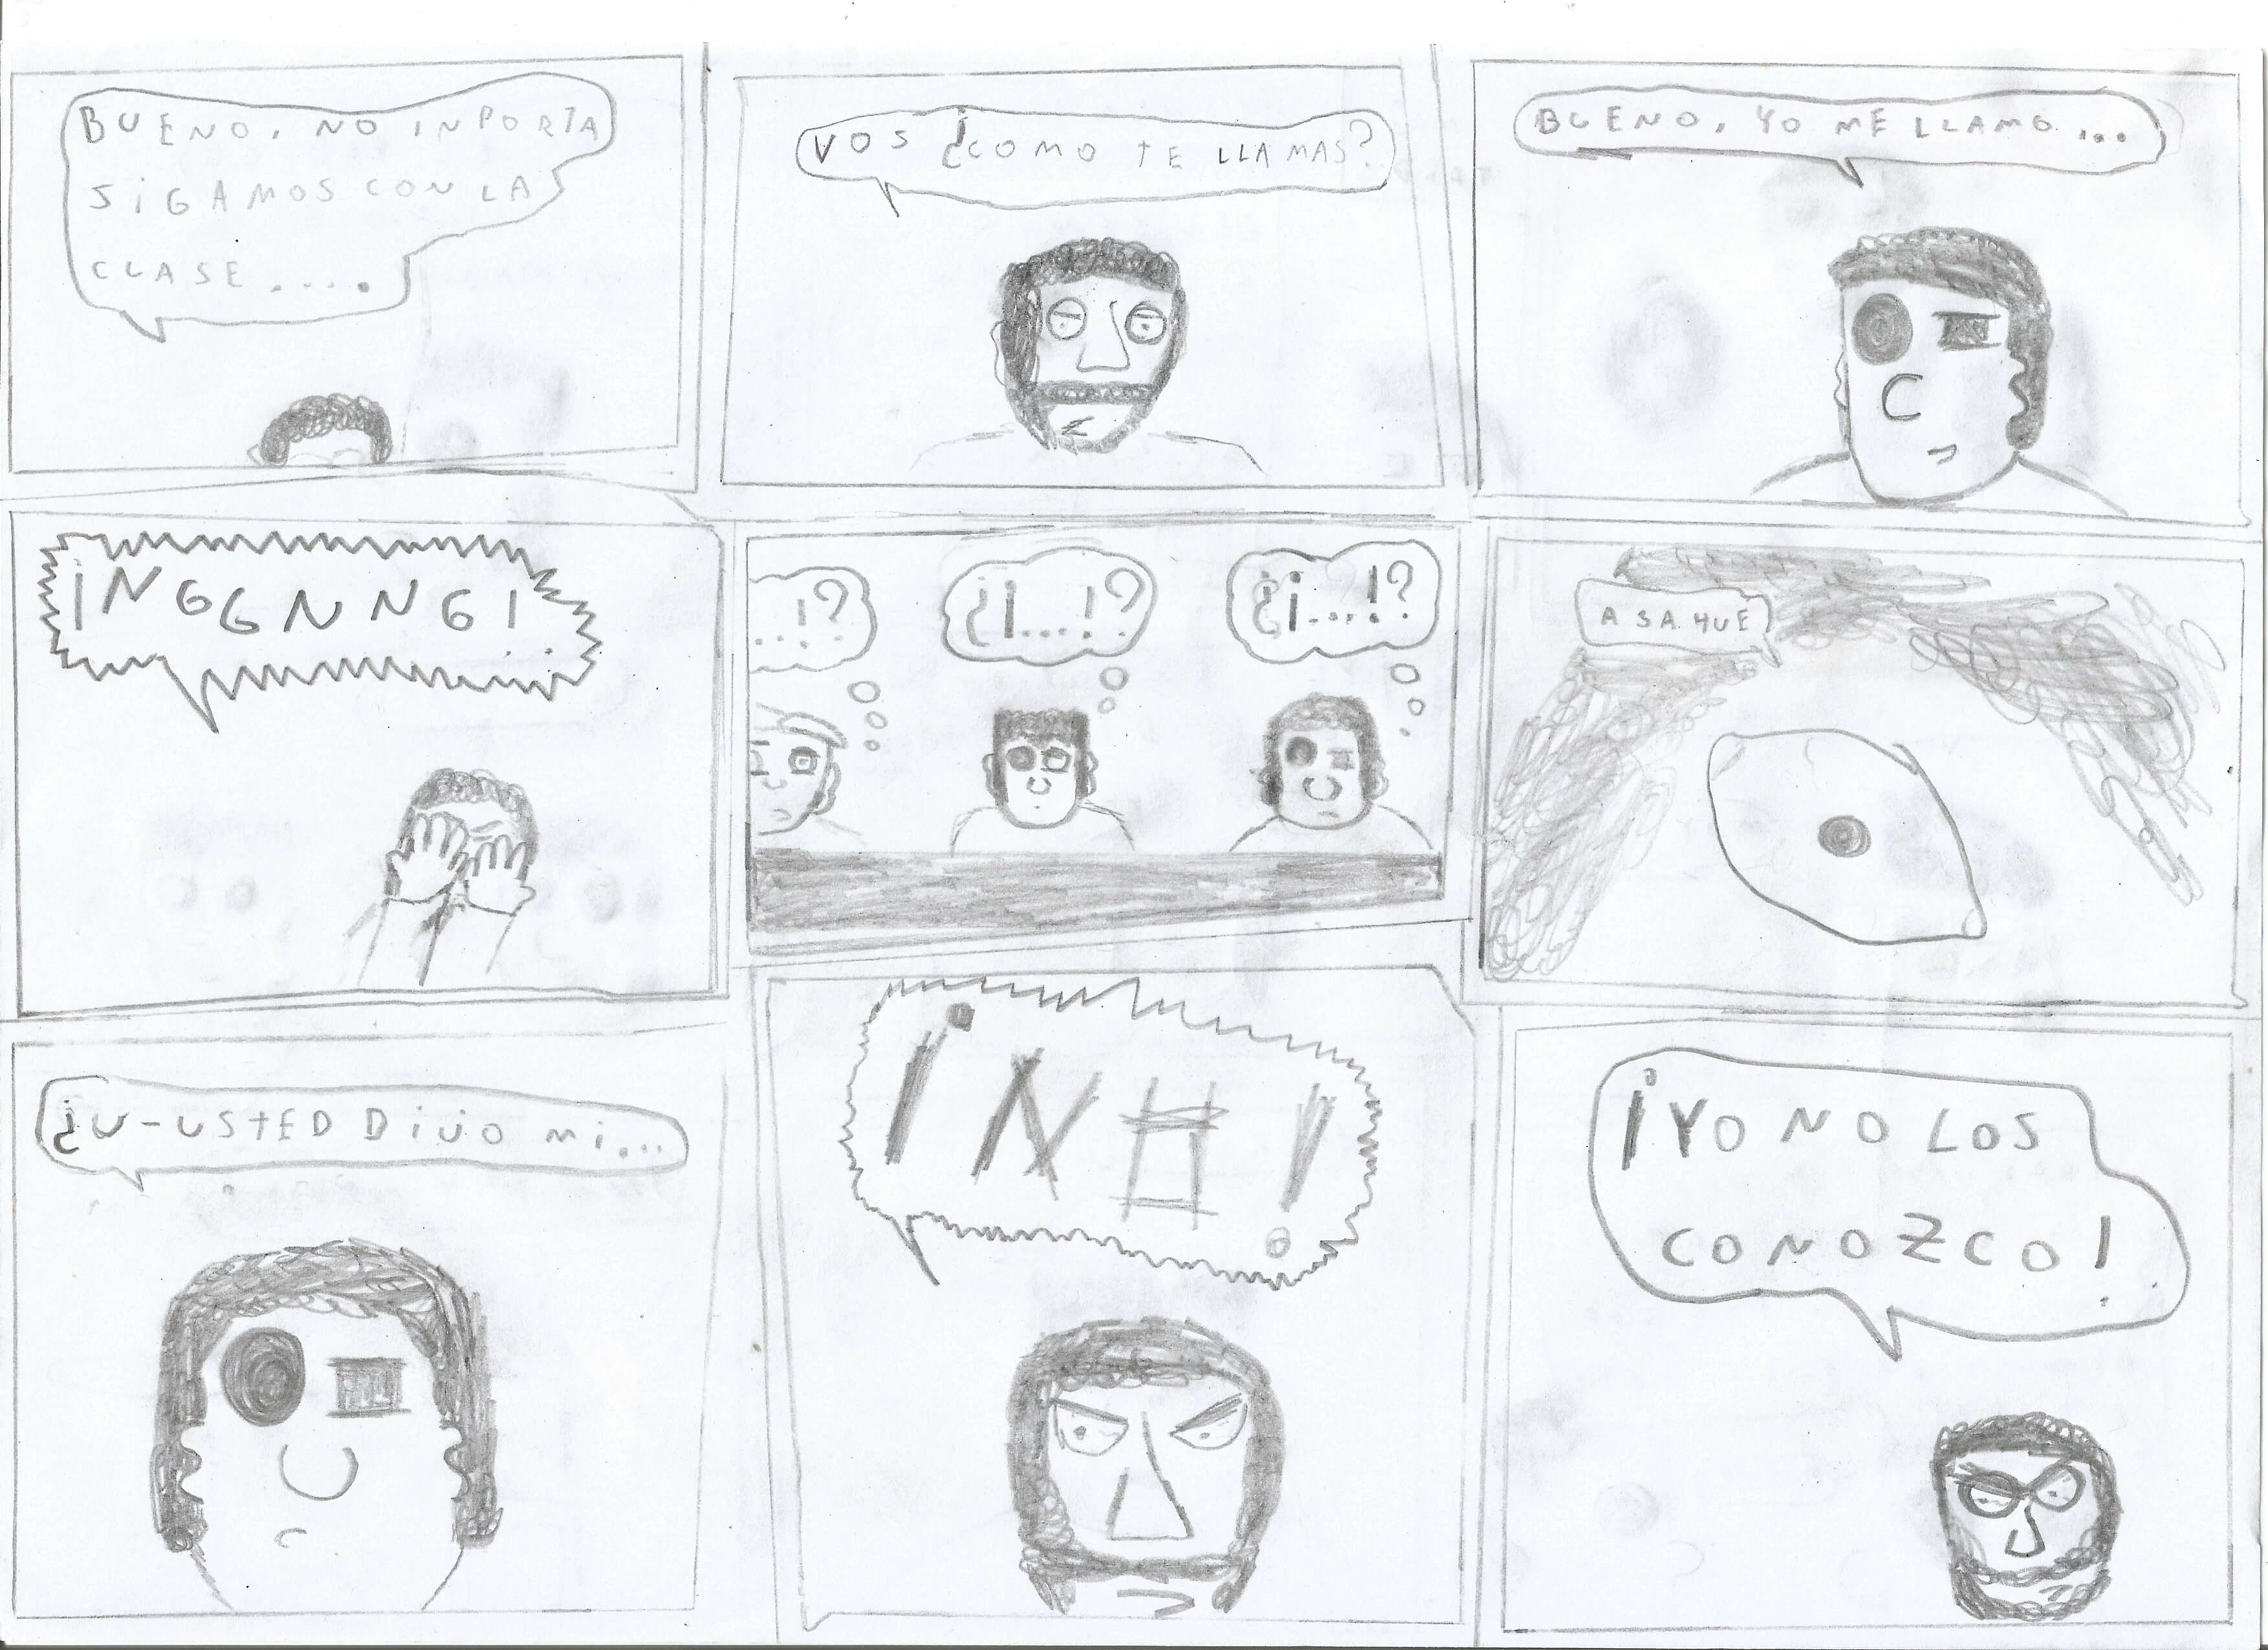 BUENO, NO INPORTA
SIGAMOS CON LA
CLASE....
VOS ¿COMO TE LLAMAS?
BUENO, YO ME LLAMO...
¡NGGNNG!
...!?
¿¡...!?
¿¡...!?
ASAHUE
¿U-USTED DIJO MI...
¡NO!
¡YO NO LOS
CONOZCO!